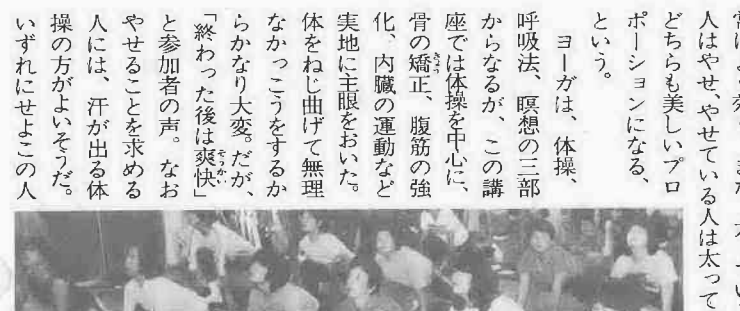 人はやせ、やせている人は太って
どちらも美しいプロ
ポーションになる、
という。
ヨーガは、体操、
呼吸法、瞑想の三部
からなるが、この講
座では体操を中心に、
骨の矯正、腹筋の強
化、内臓の運動など
実地に主眼をおいた。
体をねじ曲げて無理
なかっこうをするか
らかなり大変。だが、
「終わった後は爽快」
と参加者の声。なお
やせることを求める
人には、汗が出る体
操の方がよいそうだ。
いずれにせよこの人